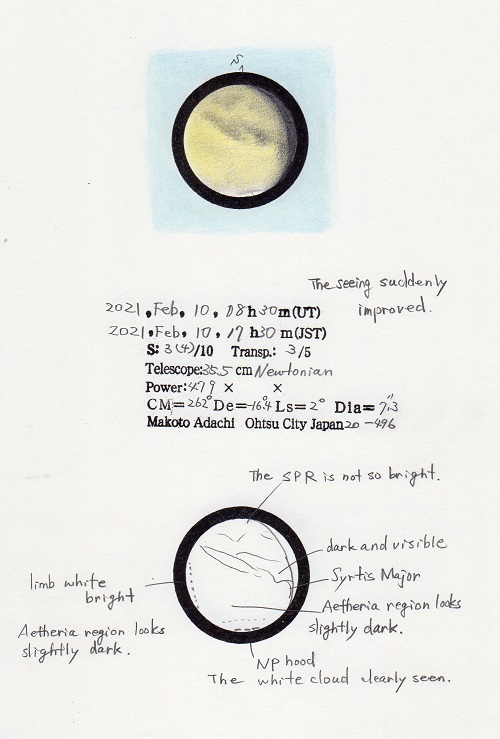 S
The seeing suddenly
improved.
2021.Feb. 10, 08h30m(UT)
2021.Feb. 10, 17h30m(JST)
S: 3(4)/10 Transp.: 3/5
Telescope:35.5 cm Newtonian
Power:479 × ×
CM=262° De=-16.4° Ls=2° Dia=7.3"
Makoto Adachi Ohtsu City Japan 20-496
The SPR is not so bright.
dark and visible
Syrtis Major
limb white
bright
Aetheria region looks
slightly dark.
Aetheria region looks
slightly dark.
NP hood
The white cloud clearly seen.